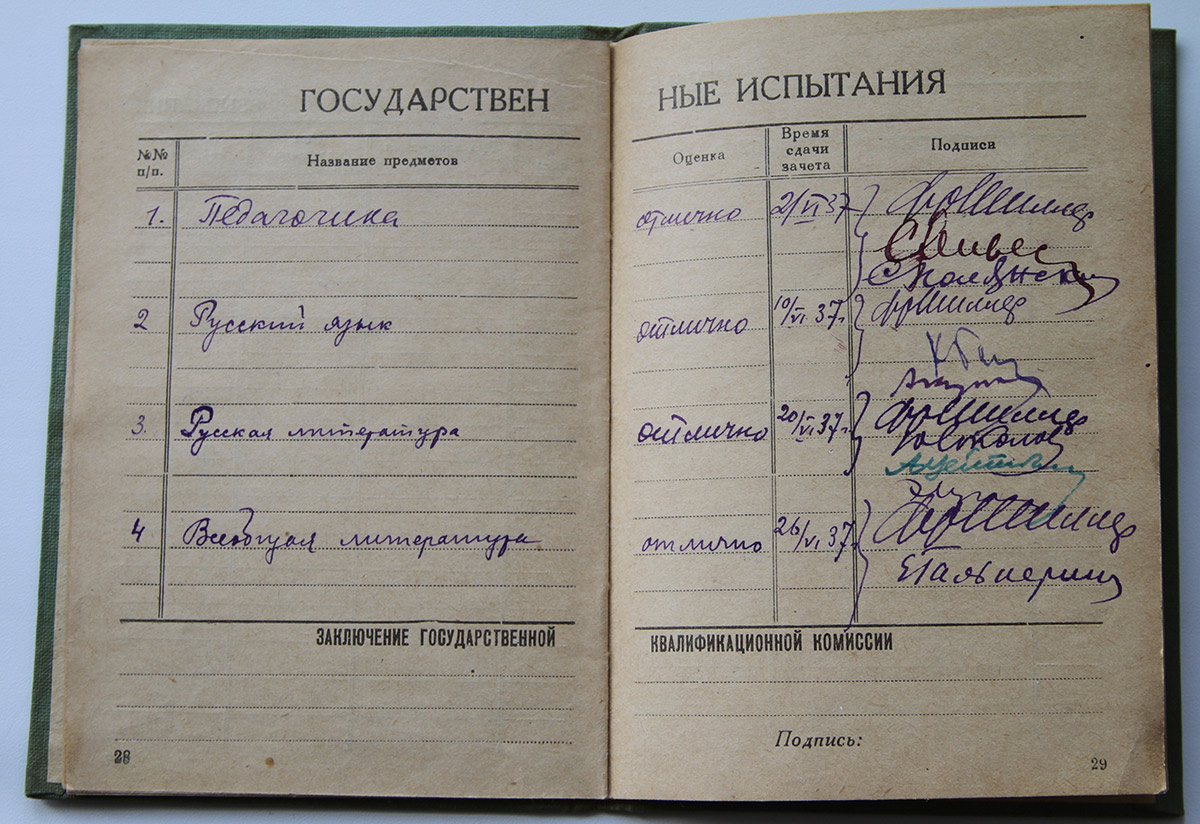 ГОСУДАРСТВЕН
НЫЕ ИСПЫТАНИЯ
№№ п/п.
Название предметов
Оценка
Время сдачи зачета
Подписи
1. Педагогика отлично 2/VI 37
2 Русский язык отлично 10/VI 37г.
3. Русская литература отлично 20/VI 37г.
4 Всеобщая литература отлично 26/VI 37г.
Гальперин
ЗАКЛЮЧЕНИЕ ГОСУДАРСТВЕННОЙ
КВАЛИФИКАЦИОННОЙ КОМИССИИ
Подпись:
28
29